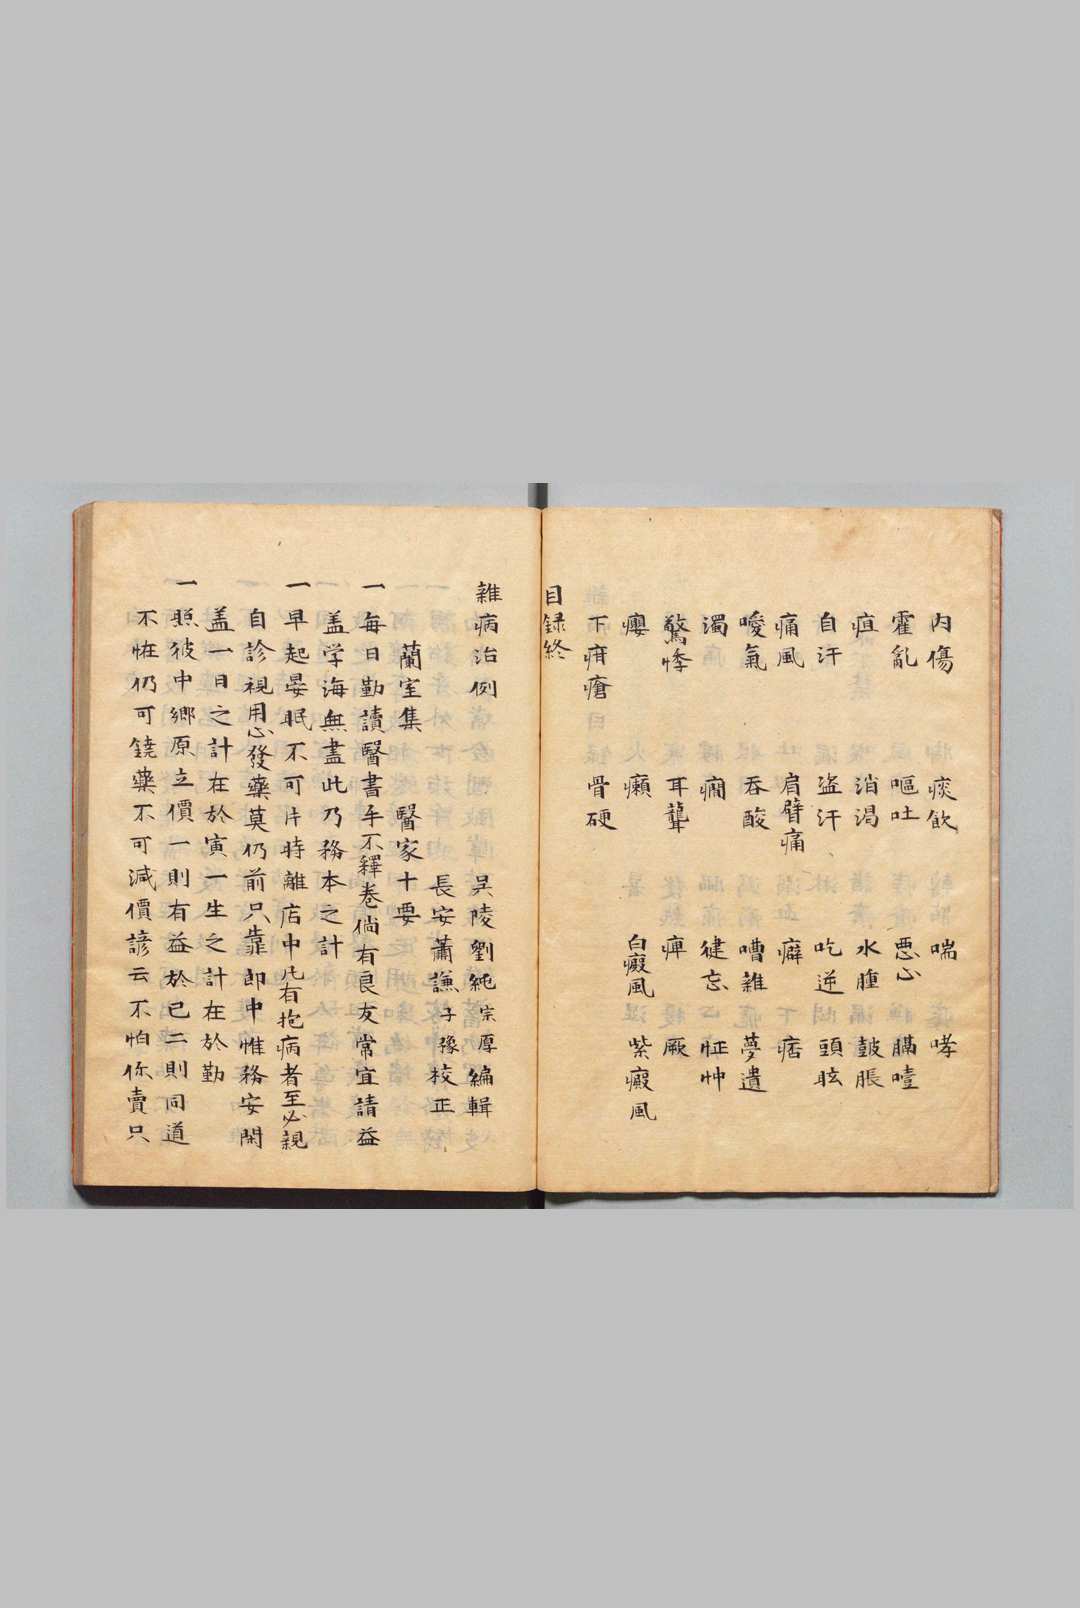 內傷 痰飲 喘 哮
霍亂 嘔吐 惡心 膈噎
疸 消渴 水腫 鼓脹
自汗 盜汗 吃逆 頭眩
痛風 肩臂痛 癖 痞
噯氣 吞酸 嘈雜 夢遺
濁 癇 健忘 怔忡
驚悸 耳聾 痺 厥
癭 癩 白癜風 紫癜風
下疳瘡 骨硬
目録終
雜病治例 吴陵劉純宗厚編輯
長安蕭謙子豫校正
蘭室集 醫家十要
一每日勤讀醫書手不釋卷倘有良友常宜請益
盖学海無盡此乃務本之計
一早起晏眠不可片時離店中凡有抱病者至必親
自診視用心發藥莫仍前只靠郎中惟務安閑
盖一日之計在於寅一生之計在於勤
一照彼中鄉原立價一則有益於已二則同道
不恠仍可饒藥不可減價諺云不怕你賣只